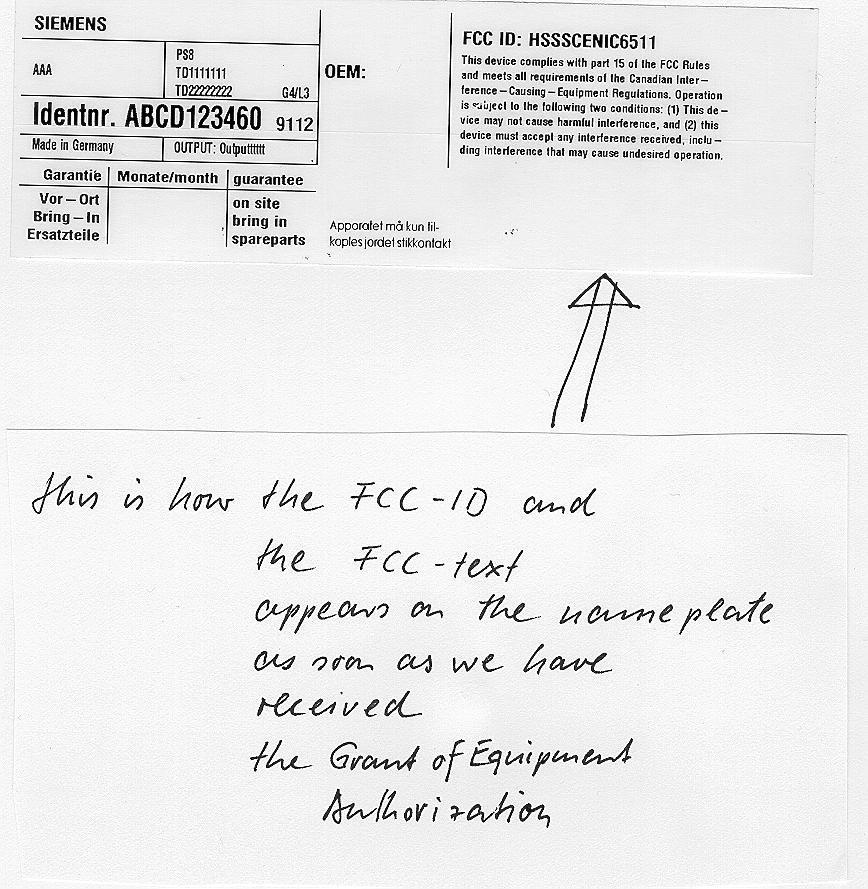 SIEMENS
AAA
PS8
TD1111111
TD22222222 G4/L3
Identnr. ABCD123460 9112
Made in Germany OUTPUT: Outputttttt
Garantie Monate/month guarantee
Vor–Ort on site
Bring–In bring in
Ersatzteile spareparts
OEM:
Apparatet må kun til-
koples jordet stikkontakt
FCC ID: HSSSCENIC6511
This device complies with part 15 of the FCC Rules
and meets all requirements of the Canadian Inter–
ference–Causing–Equipment Regulations. Operation
is subject to the following two conditions: (1) This de–
vice may not cause harmful interference, and (2) this
device must accept any interference received, inclu–
ding interference that may cause undesired operation.
this is how the FCC-ID and
the FCC-text
appears on the nameplate
as soon as we have
received
the Grant of Equipment
Authorization